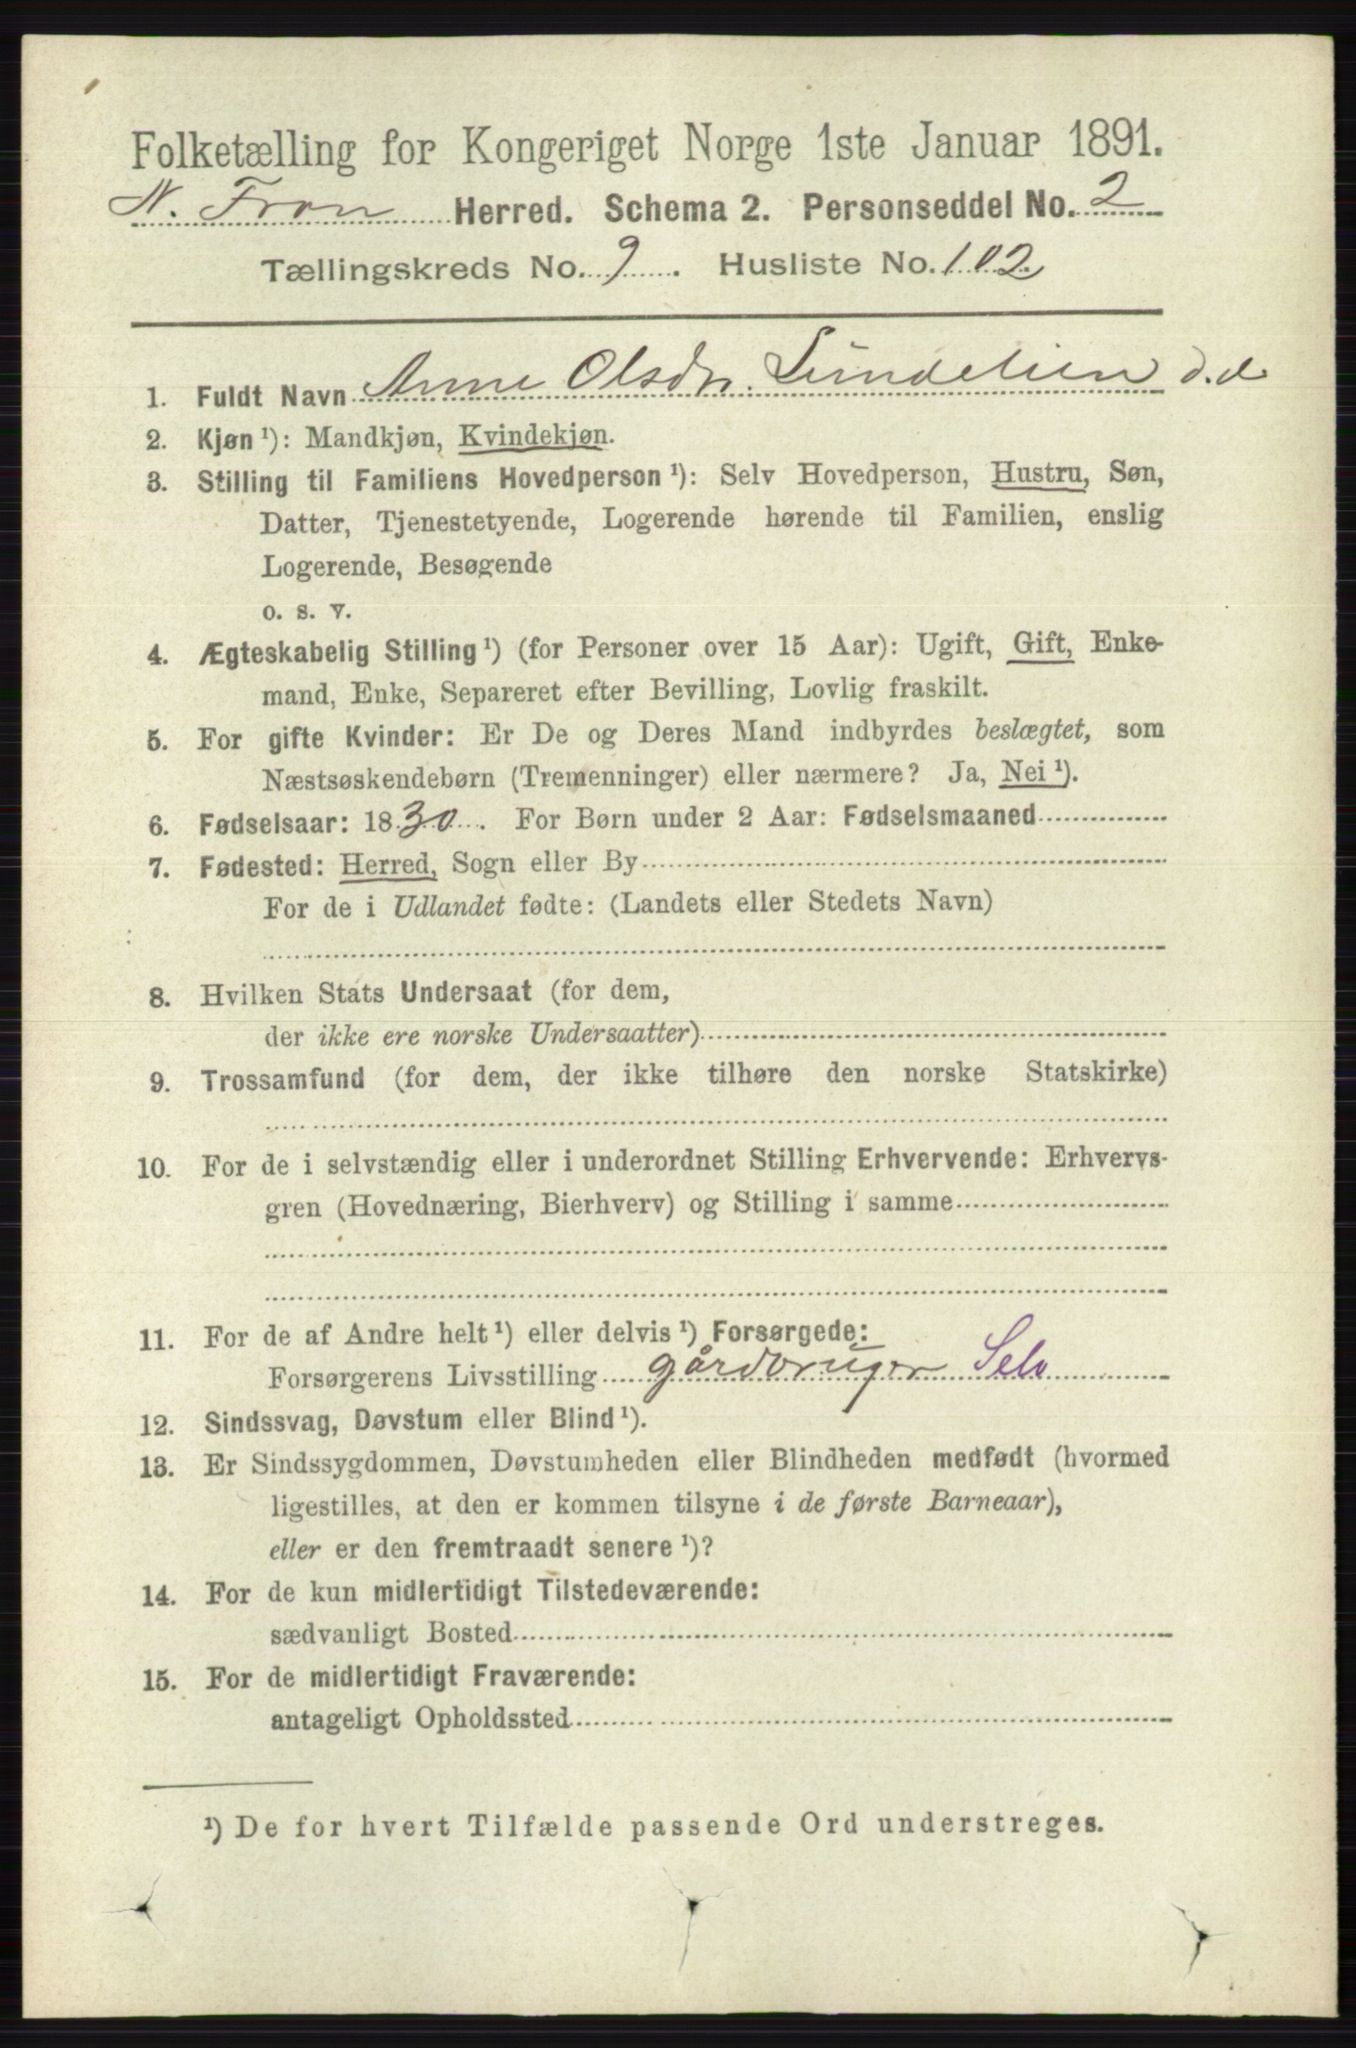 Folketælling for Kongeriget Norge 1ste Januar 1891.
N. Fron Herred. Schema 2. Personseddel No. 2
Tællingskreds No. 9. Husliste No. 102
1. Fuldt Navn Anne Olsdr. Lundelien d.d
2. Kjøn ¹): Mandkjøn, Kvindekjøn.
3. Stilling til Familiens Hovedperson ¹): Selv Hovedperson, Hustru, Søn,
Datter, Tjenestetyende, Logerende hørende til Familien, enslig
Logerende, Besøgende
o. s. v.
4. Ægteskabelig Stilling ¹) (for Personer over 15 Aar): Ugift, Gift, Enke-
mand, Enke, Separeret efter Bevilling, Lovlig fraskilt.
5. For gifte Kvinder: Er De og Deres Mand indbyrdes beslægtet, som
Næstsøskendebørn (Tremenninger) eller nærmere? Ja, Nei ¹).
6. Fødselsaar: 1830. For Børn under 2 Aar: Fødselsmaaned
7. Fødested: Herred, Sogn eller By
For de i Udlandet fødte: (Landets eller Stedets Navn)
8. Hvilken Stats Undersaat (for dem,
der ikke ere norske Undersaatter)
9. Trossamfund (for dem, der ikke tilhøre den norske Statskirke)
10. For de i selvstændig eller i underordnet Stilling Erhvervende: Erhvervs-
gren (Hovednæring, Bierhverv) og Stilling i samme
11. For de af Andre helt ¹) eller delvis ¹) Forsørgede:
Forsørgerens Livsstilling gårdbruger Selv
12. Sindssvag, Døvstum eller Blind ¹).
13. Er Sindssygdommen, Døvstumheden eller Blindheden medfødt (hvormed
ligestilles, at den er kommen tilsyne i de første Barneaar),
eller er den fremtraadt senere ¹)?
14. For de kun midlertidigt Tilstedeværende:
sædvanligt Bosted
15. For de midlertidigt Fraværende:
antageligt Opholdssted
¹) De for hvert Tilfælde passende Ord understreges.